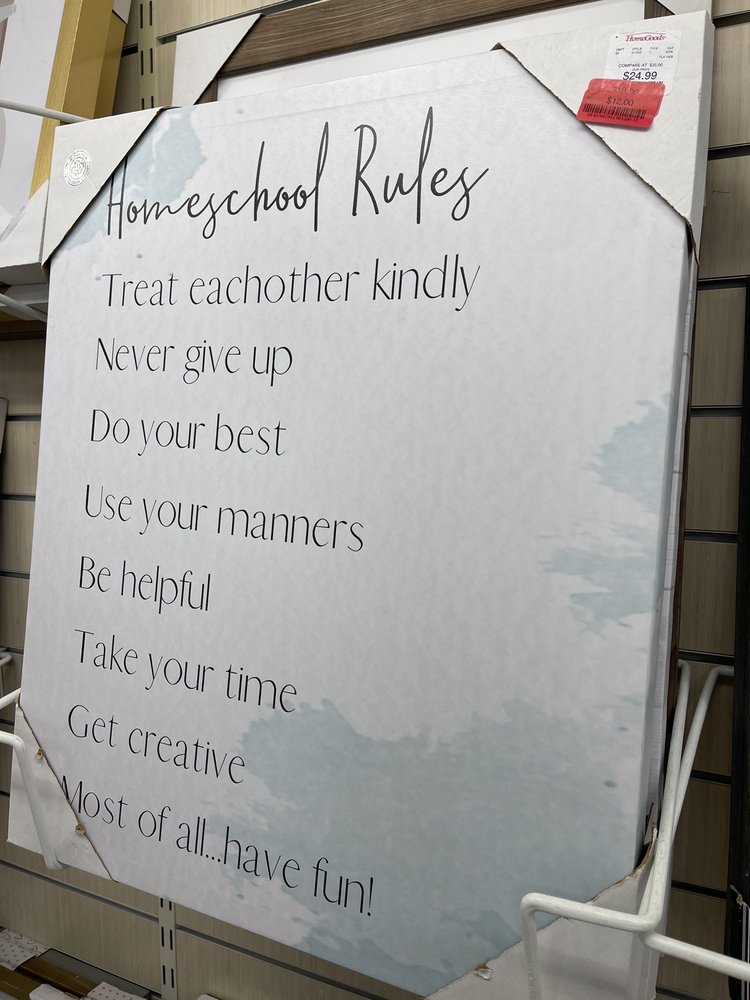 HomeGoods
COMPARE AT $35.00
OUR PRICE
$24.99
$12.00
Homeschool Rules
Treat eachother kindly
Never give up
Do your best
Use your manners
Be helpful
Take your time
Get creative
Most of all...have fun!